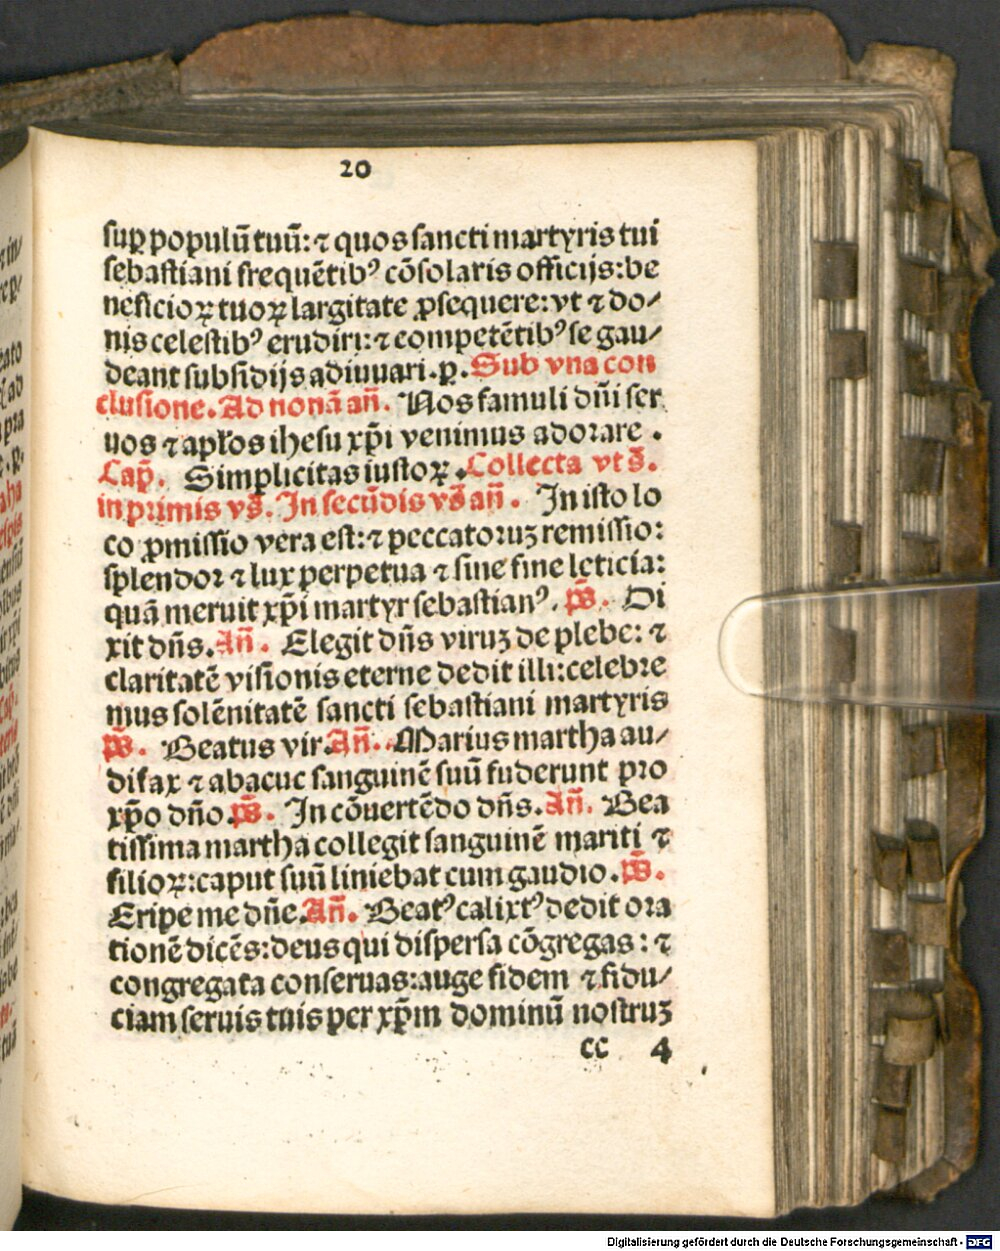 20
suꝑ populū tuū: ⁊ quos sancti martyris tui
sebastiani frequētibꝰ cōsolaris officijs: be
neficioꝝ tuoꝝ largitate ꝓsequere: vt ⁊ do⸗
nis celestibꝰ erudiri: ⁊ competētibꝰ se gau⸗
deant subsidijs adiuuari. p. Sub vna con
clusione. Ad nonā añ. Nos famuli dñi ser
uos ⁊ apłos ihesu xp̄i venimus adorare.
Cap̄. Simplicitas iustoꝝ. Collecta vt s̄.
in primis vs̄. In secūdis vs̄ añ. In isto lo
co ꝓmissio vera est: ⁊ peccatoruꝫ remissio:
splendor ⁊ lux perpetua ⁊ sine fine leticia:
quā meruit xp̄i martyr sebastianꝰ. ps̄. Di
xit dñs. Añ. Elegit dñs viruꝫ de plebe: ⁊
claritatē visionis eterne dedit illi: celebre
mus solēnitatē sancti sebastiani martyris
ps̄. Beatus vir. Añ. Marius martha au⸗
difax ⁊ abacuc sanguinē suū fuderunt pro
xp̄o dño. ps̄. In cōuertēdo dñs. Añ. Bea
tissima martha collegit sanguinē mariti ⁊
filioꝝ: caput suū liniebat cum gaudio. ps̄.
Eripe me dñe. Añ. Beatꝰ calixtꝰ dedit ora
tionē dicēs: deus qui dispersa cōgregas: ⁊
congregata conseruas: auge fidem ⁊ fidu⸗
ciam seruis tuis per xp̄m dominū nostruꝫ
cc 4
Digitalisierung gefördert durch die Deutsche Forschungsgemeinschaft - DFG